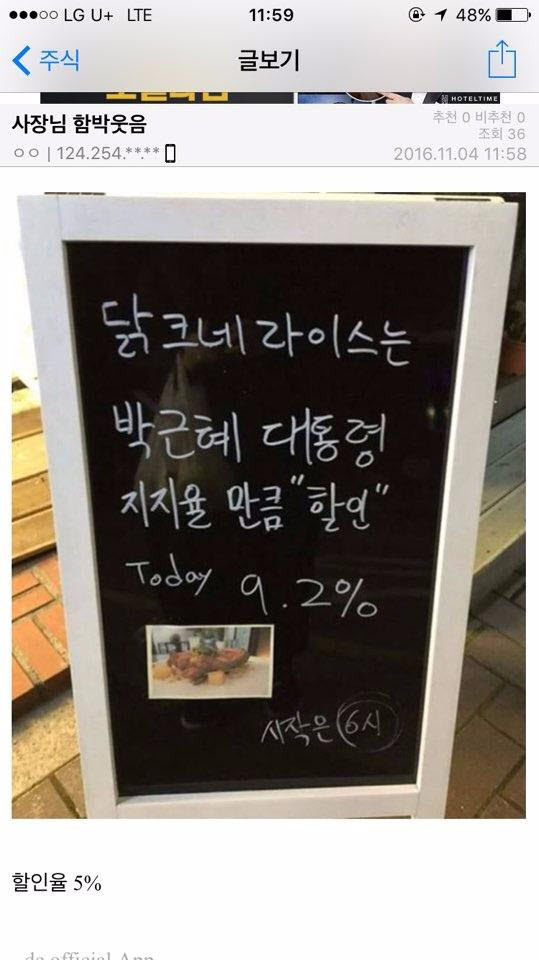 LG U+ LTE 11:59 48%
주식 글보기
HOTELTIME
사장님 함박웃음
추천 0 비추천 0
조회 36
ㅇㅇ | 124.254.**.**
2016.11.04 11:58
닭크네 라이스는
박근혜 대통령
지지율 만큼 "할인"
Today 9.2%
시작은 6시
할인율 5%
dc official App